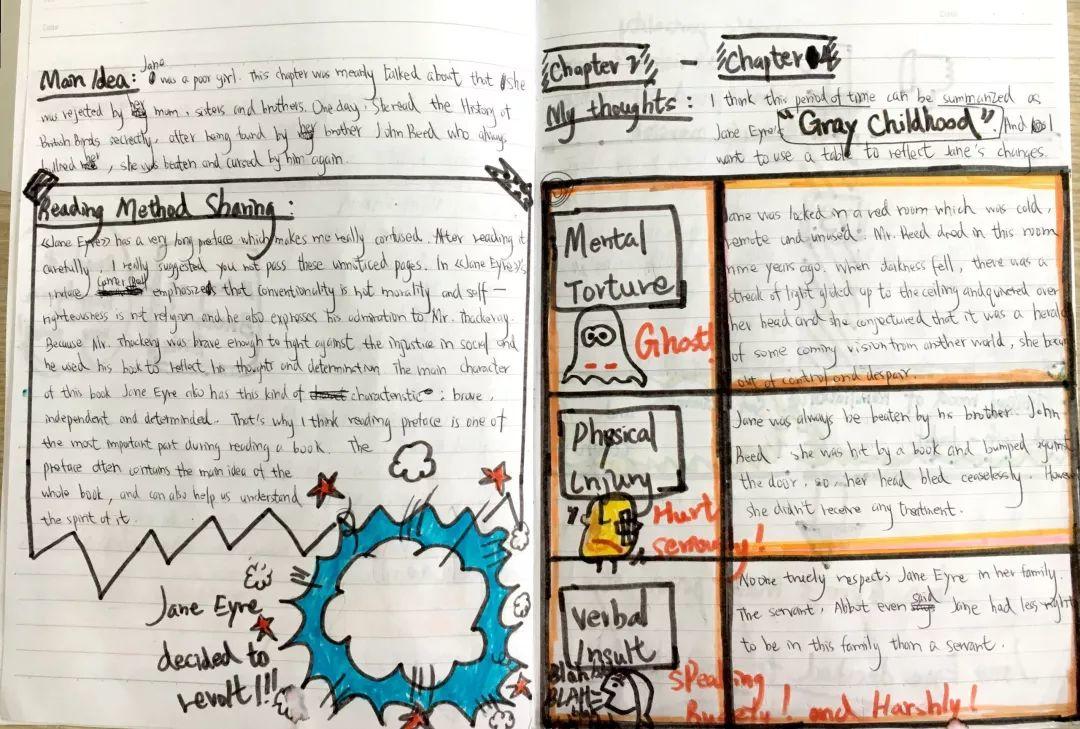 Main Idea: Jane was a poor girl. This chapter was mearly talked about that she
was rejected by her mom, sisters and brothers. One day, She read the History of
British Birds secrectly, after being found by her brother John Reed who always
bullied her, she was beaten and cursed by him again.
Reading Method Sharing:
《Jane Eyre》 has a very long preface which makes me really confused. After reading it
carefully, I really suggested you not pass these unnoticed pages. In 《Jane Eyre》's
preface emphasizes that conventionality is not morality and self-
righteousness is not religion and he also expresses his admiration to Mr. Thackeray.
Because Mr. Thackery was brave enough to fight against the injustice in society and
he used his book to reflect his thoughts and determination. The main character
of this book Jane Eyre also has this kind of characteristic: brave,
independent and determinded. That's why I think reading preface is one of
the most important part during reading a book. The
preface often contains the main idea of the
whole book, and can also help us understand
the spirit of it.
Jane Eyre
decided to
revolt!!!
Chapter 1 - Chapter 4
My thoughts: I think this period of time can be summarized as
Jane Eyre's "Gray Childhood". And I
want to use a table to reflect Jane's changes.
Mental
Torture
Ghost!
Jane was locked in a red room which was cold,
remote and unused. Mr. Reed died in this room
nine years ago. When darkness fell, there was a
streak of light glided up to the ceiling and quivered over
her head and she conjectured that it was a herald
of some coming vision from another world, she became
out of control and despair.
Physical
Injury
Hurt
seriously!
Jane was always be beaten by his brother. John
Reed. she was hit by a book and bumped against
the door, so, her head bled ceaselessly. However
she didn't receive any treatment.
Verbal
Insult
Blah
BLAH
Speaking
Rudely! and Harshly!
No one truely respects Jane Eyre in her family.
The servant, Abbot even said Jane had less right
to be in this family than a servant.